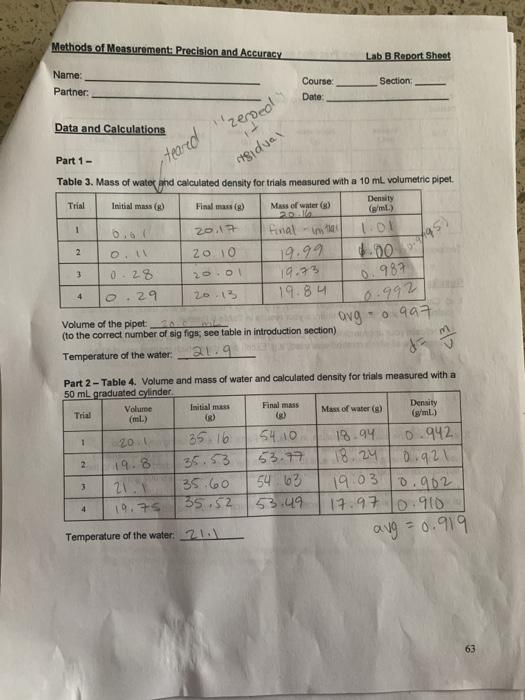 Methods of Measurement: Precision and Accuracy Lab B Report Sheet
Name: Course: Section:
Partner: Date:
"zeroed"
it
teared residual
Data and Calculations
Part 1 –
Table 3. Mass of water and calculated density for trials measured with a 10 mL volumetric pipet.
Trial Initial mass (g) Final mass (g) Mass of water (g) Density (g/mL)
20.16
1 0.01 20.17 final - initial 1.01
2 0.11 20.10 19.99 .00
3 0.28 20.01 19.73 0.987
4 0.29 20.13 19.84 0.992
avg = 0.997
Volume of the pipet: 20.0 mL
(to the correct number of sig figs; see table in introduction section)
d = m/v
Temperature of the water: 21.9
Part 2 – Table 4. Volume and mass of water and calculated density for trials measured with a
50 mL graduated cylinder.
Trial Volume (mL) Initial mass (g) Final mass (g) Mass of water (g) Density (g/mL)
1 20.1 35.16 54.10 18.94 0.942
2 19.8 35.53 53.77 18.24 0.921
3 21.1 35.60 54.63 19.03 0.902
4 19.75 35.52 53.49 17.97 0.910
avg = 0.919
Temperature of the water: 21.1
63